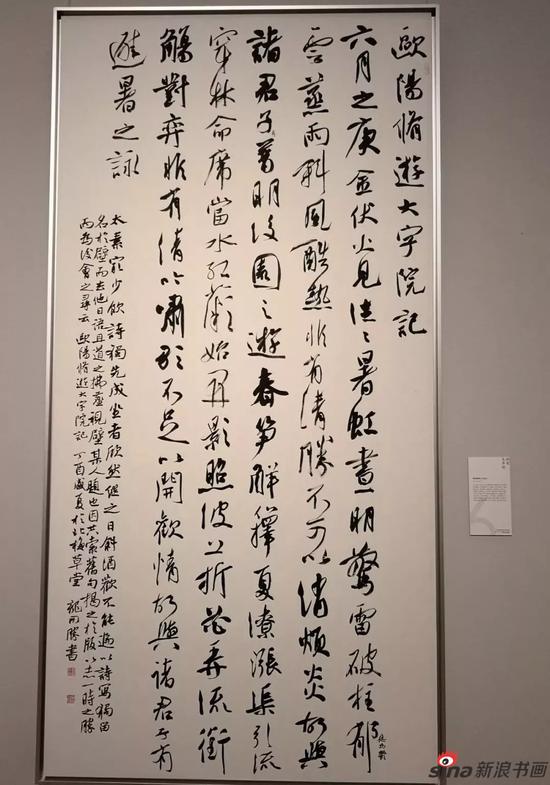 歐陽脩遊大字院記
六月之庚金伏火見往々暑虹晝明驚雷破柱郁
雲蒸雨斜風酷熱非有清勝不可以消煩炎故與
諸君子普明後園之遊春笋解籜夏潦漲渠引流
穿林命席當水紅薇始開影照波上折花弄流銜
觴對弈非有清吟嘯歌不足以開歡情故與諸君子有
避暑之詠
太素最少飲詩獨先成坐者欣然繼之日斜酒歡不能遍以詩寫獨留
名於壁而去他日語且道之拂塵視壁某人題也因共索舊句揭之於版以志一時之勝
而為後會之尋云 歐陽脩遊大字院記 丁酉盛夏於北草堂 龍開勝書
sina新浪书画